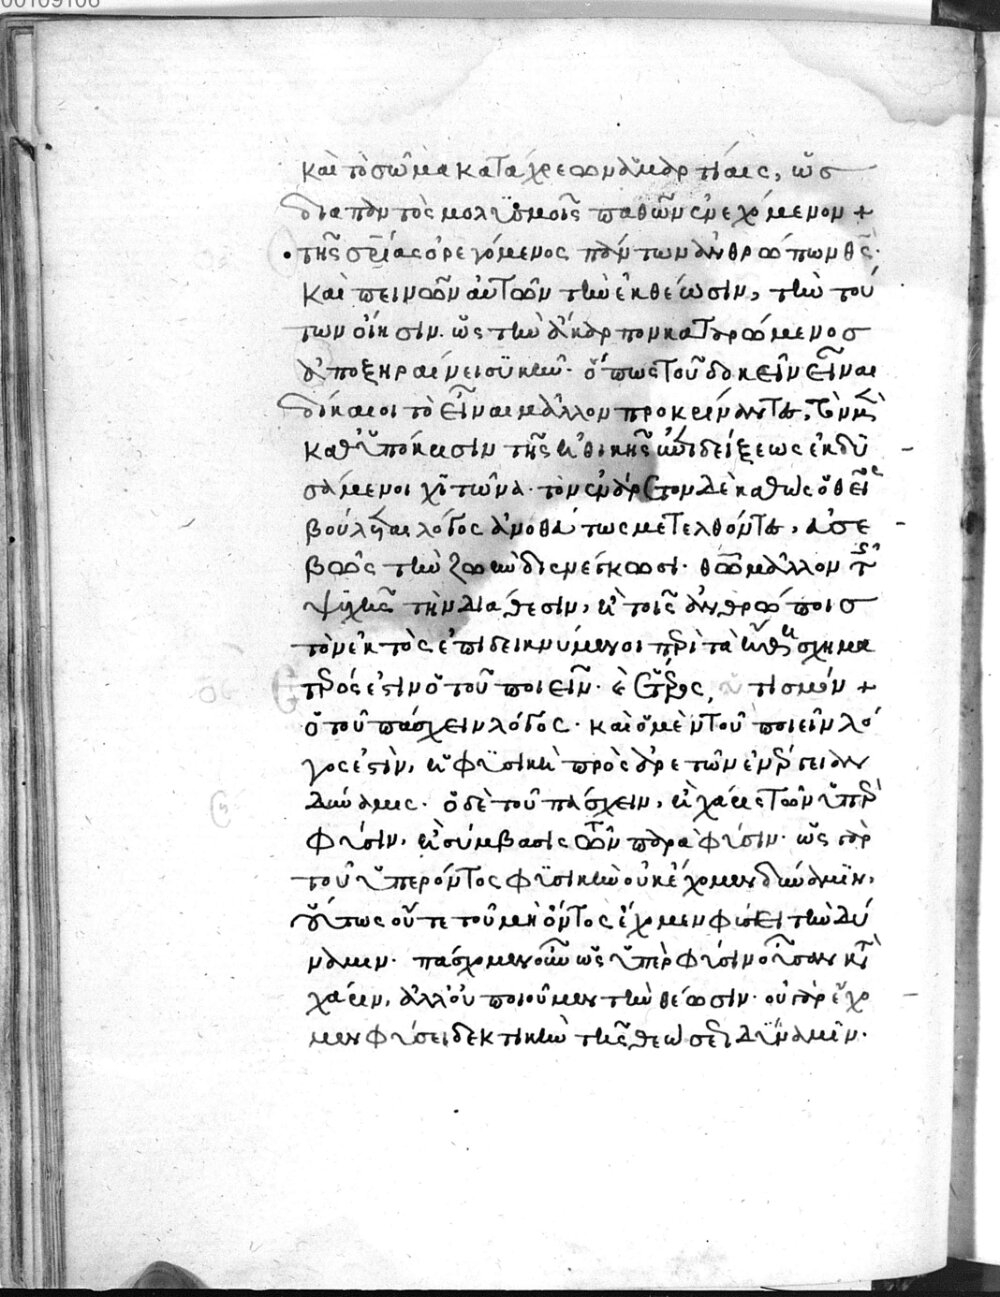 00109106
καὶ τὸ σῶμα κατάχρεων ἁμαρτίαις, ὡς
διαπαντὸς μολυσμοῖς παθῶν ἐνεχόμενον +
τῆς σρίας ὀρεγόμενος πάντων ἀνθρώπων θς·
καὶ πεινῶν αὐτῶν τὴν ἐκθέωσιν, τὴν τού
των οἴησιν. ὡς τὴν ἄκαρπον καταρώμενος
ἀποξηραίνει συκῆν· ὅπως τοῦ δοκεῖν εἶναι
δίκαιοι τὸ εἶναι μᾶλλον προκρίναντες, τὸν μὲν
καθ' ὑπόκρισιν τῆς ἠθικῆς ἐπιδείξεως ἐκδυ
σάμενοι χιτῶνα· τὸν ἐνάρετον δὲ καθὼς ὁ θεῖος
βούλεται λόγος ἀνοθεύτως μετελθόντες, εὐσε
βῶς τὴν ζωὴν διενέγκωσι· θῶ μᾶλλον τῆς
ψυχῆς τὴν διάθεσιν, ἢ τοῖς ἀνθρώποις
τὸν ἐκτὸς ἐπιδεικνύμενοι περὶ τὰ ἤθη σχημα
πρός ἐστιν ὁ τοῦ ποιεῖν· ἕτερος τισμόν +
ὁ τοῦ πάσχειν λόγος· καὶ ὁ μὲν τοῦ ποιεῖν λό
γος ἐστὶν, ἡ φυσικὴ πρὸς ἀρετῶν ἐνέργειαν
δύναμις· ὁ δὲ τοῦ πάσχειν, ἢ χάρις τῶν ὑπὲρ
φύσιν, ἢ σύμβασις τῶν παρὰ φύσιν· ὡς γὰρ
τοῦ ὑπερόντος φυσικὴν οὐκ ἔχομεν δύναμιν,
οὕτως οὔτε τοῦ μὴ ὄντος ἔχομεν φύσει τὴν δύ
ναμιν· πάσχομεν οὖν ὡς ὑπὲρ φύσιν οὖσαν κατὰ
χάριν, ἀλλ' οὐ ποιοῦμεν τὴν θέωσιν· οὐ γὰρ ἔχο
μεν φύσει δεκτικὴν τῆς θεώσεως δύναμιν·